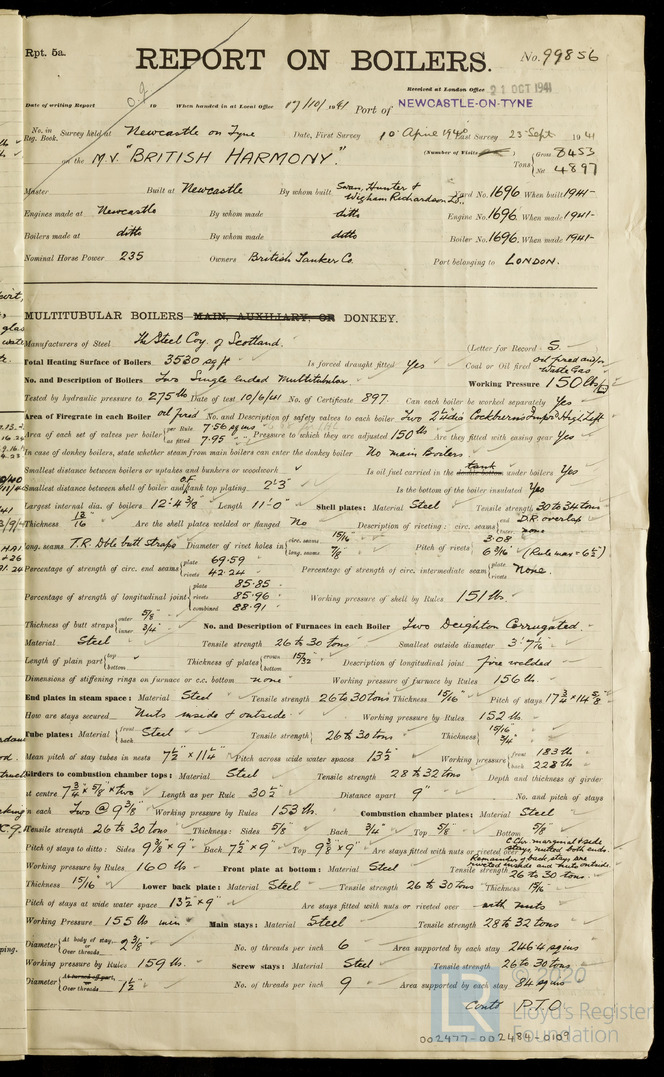 Rpt. 5a.
REPORT ON BOILERS.
No. 99856
Received at London Office 21 OCT 1941
Date of writing Report 19 When handed in at Local Office 17/10/1941 Port of NEWCASTLE-ON-TYNE
No. in Reg. Book. Survey held at Newcastle on Tyne Date, First Survey 10 April 1940 Last Survey 23 Sept 1941
on the M.V. "BRITISH HARMONY." (Number of Visits) Tons Gross 8453 Net 4897
Master Built at Newcastle By whom built Swan, Hunter & Wigham Richardson Ld., Yard No. 1696 When built 1941-
Engines made at Newcastle By whom made ditto Engine No. 1696 When made 1941-
Boilers made at ditto By whom made ditto Boiler No. 1696 When made 1941-
Nominal Horse Power 235 Owners British Tanker Co. Port belonging to LONDON.
MULTITUBULAR BOILERS MAIN, AUXILIARY, OR DONKEY.
Manufacturers of Steel The Steel Coy. of Scotland. (Letter for Record S.
Total Heating Surface of Boilers 3530 sq ft Is forced draught fitted Yes Coal or Oil fired oil fired and/or Waste Gas
No. and Description of Boilers Two Single ended Multitubular Working Pressure 150 lbs
Tested by hydraulic pressure to 275 lbs Date of test 10/6/41 No. of Certificate 897 Can each boiler be worked separately Yes
Area of Firegrate in each Boiler oil fired No. and Description of safety valves to each boiler Two 2¼" dia Cockburns Impd High Lift
Area of each set of valves per boiler per Rule 7.56 sq ins as fitted 7.95 Pressure to which they are adjusted 150 lbs Are they fitted with easing gear Yes
In case of donkey boilers, state whether steam from main boilers can enter the donkey boiler No main Boilers
Smallest distance between boilers or uptakes and bunkers or woodwork Is oil fuel carried in the double bottom tank under boilers Yes
Smallest distance between shell of boiler and tank top plating O.F. 2'.3" Is the bottom of the boiler insulated Yes
Largest internal dia. of boilers 12'-4⅜" Length 11'-0" Shell plates: Material Steel Tensile strength 30 to 34 tons
Thickness 13/16" Are the shell plates welded or flanged No Description of riveting: circ. seams end D.R. overlap inter. none
long. seams T.R. Dble butt straps Diameter of rivet holes in circ. seams 15/16" long. seams 7/8" Pitch of rivets 3.08 6 3/16" (Rule max = 6½")
Percentage of strength of circ. end seams plate 69.59 rivets 42.24 Percentage of strength of circ. intermediate seam plate rivets None.
Percentage of strength of longitudinal joint plate 85.85 rivets 85.96 combined 88.91 Working pressure of shell by Rules 151 lb
Thickness of butt straps outer 5/8" inner 3/4" No. and Description of Furnaces in each Boiler Two Deighton Corrugated
Material Steel Tensile strength 26 to 30 tons Smallest outside diameter 3'-7 1/16"
Length of plain part top bottom Thickness of plates crown bottom 15/32" Description of longitudinal joint fire welded
Dimensions of stiffening rings on furnace or c.c. bottom none Working pressure of furnace by Rules 156 lb.
End plates in steam space: Material Steel Tensile strength 26 to 30 tons Thickness 15/16" Pitch of stays 17¾" × 14⅝"
How are stays secured Nuts inside & outside Working pressure by Rules 152 lb.
Tube plates: Material front back Steel Tensile strength 26 to 30 tons Thickness 15/16" 3/4"
Mean pitch of stay tubes in nests 7½" × 11¼" Pitch across wide water spaces 13½" Working pressure front 183 lb back 228 lb
Girders to combustion chamber tops: Material Steel Tensile strength 28 to 32 tons Depth and thickness of girder
at centre 7¾" × 5/8" × two Length as per Rule 30½" Distance apart 9" No. and pitch of stays
in each Two @ 9⅜" Working pressure by Rules 153 lb. Combustion chamber plates: Material Steel
Tensile strength 26 to 30 tons Thickness: Sides 5/8" Back 3/4" Top 5/8" Bottom 5/8"
Pitch of stays to ditto: Sides 9⅜" × 9" Back 7½" × 9" Top 9⅜" × 9" Are stays fitted with nuts or riveted over C Chr. marginal & side stays nutted both ends. Remainder of back stays are riveted inside and nuts outside
Working pressure by Rules 160 lb Front plate at bottom: Material Steel Tensile strength 26 to 30 tons
Thickness 15/16" Lower back plate: Material Steel Tensile strength 26 to 30 tons Thickness 15/16"
Pitch of stays at wide water space 13½" × 9" Are stays fitted with nuts or riveted over with nuts
Working Pressure 155 lb min Main stays: Material Steel Tensile strength 28 to 32 tons
Diameter At body of stay, or Over threads 2⅜" No. of threads per inch 6 Area supported by each stay 246.4 sq ins
Working pressure by Rules 159 lb. Screw stays: Material Steel Tensile strength 26 to 30 tons
Diameter At turned off part, or Over threads 1½" No. of threads per inch 9 Area supported by each stay 84 sq ins
Contd P.T.O
© 2020
LR
Lloyd's Register
Foundation
002477-002484-0109